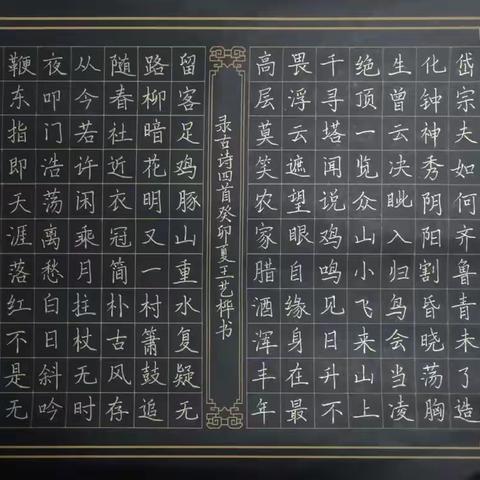 岱宗夫如何齐鲁青未了造
化钟神秀阴阳割昏晓荡胸
生曾云决眦入归鸟会当凌
绝顶一览众山小飞来山上
千寻塔闻说鸡鸣见日升不
畏浮云遮望眼自缘身在最
高层莫笑农家腊酒浑丰年
录古诗四首癸卯夏王艺桦书
留客足鸡豚山重水复疑无
路柳暗花明又一村箫鼓追
随春社近衣冠简朴古风存
从今若许闲乘月拄杖无时
夜叩门浩荡离愁白日斜吟
鞭东指即天涯落红不是无